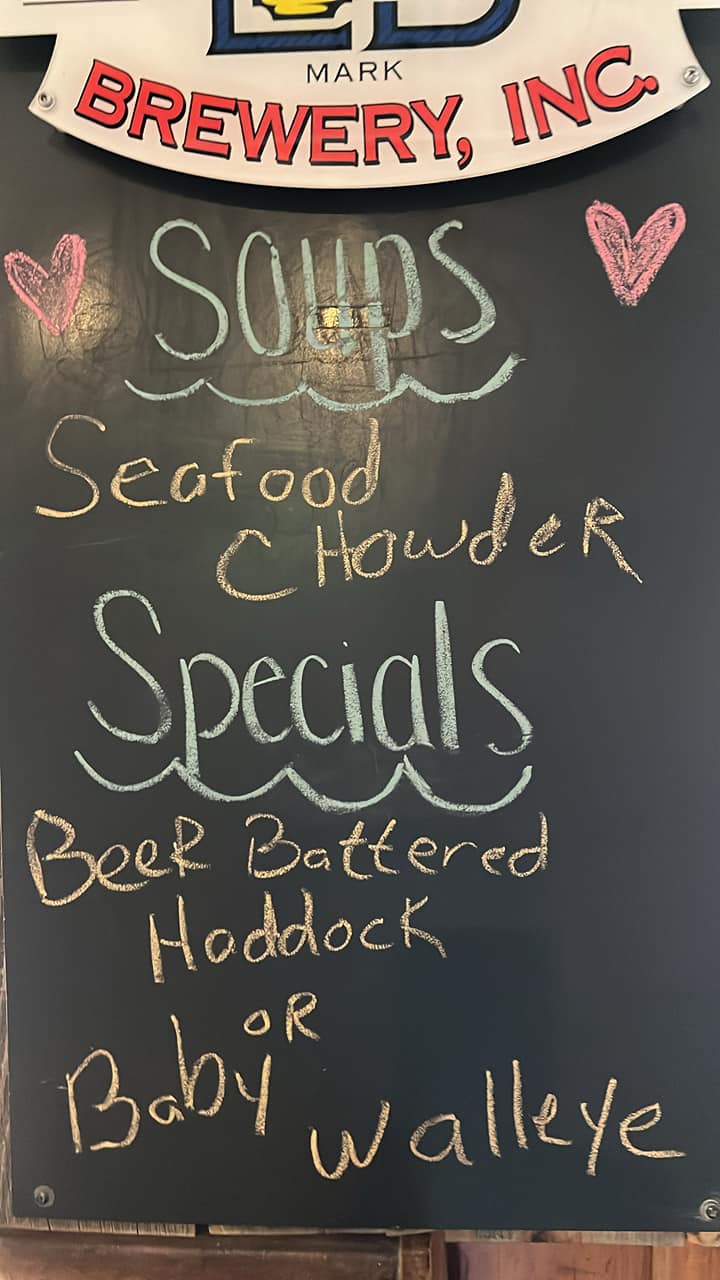 MARK
BREWERY, INC.
Soups
Seafood
CHowdeR
Specials
BeeR Battered
Haddock
oR
Baby walleye